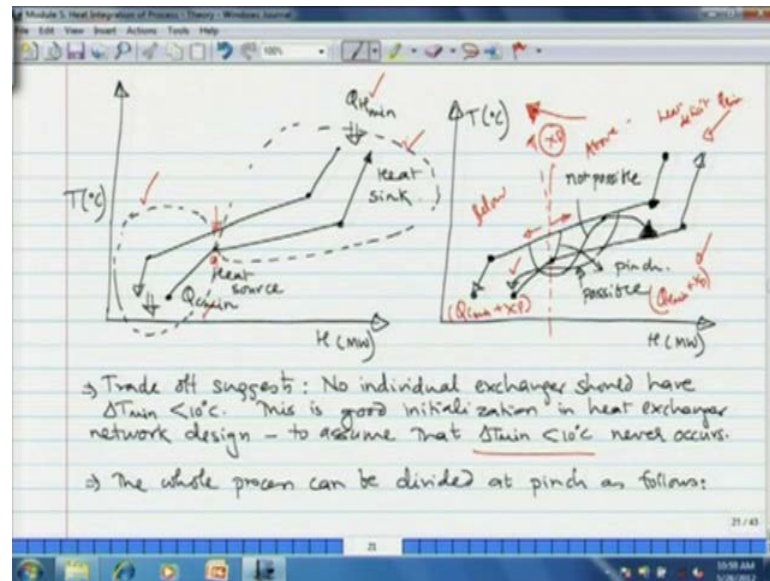 Module 5. Heat Integration of Process - Theory - Windows Journal
File Edit View Insert Actions Tools Help
100%
T(°C)
QHmin
Heat
sink
Heat
source
Qcmin
H (MW)
T(°C)
XP
Above
heat
deficit
not possible
Below
pinch
possible
(Qcmin + XP)
H (MW)
⇒ Trade off suggests: No individual exchanger should have
ΔTmin <10°C. This is good initialization in heat exchanger
network design – to assume that ΔTmin <10°C never occurs.
⇒ The whole process can be divided at pinch as follows:
21 / 43
21
10:59 AM